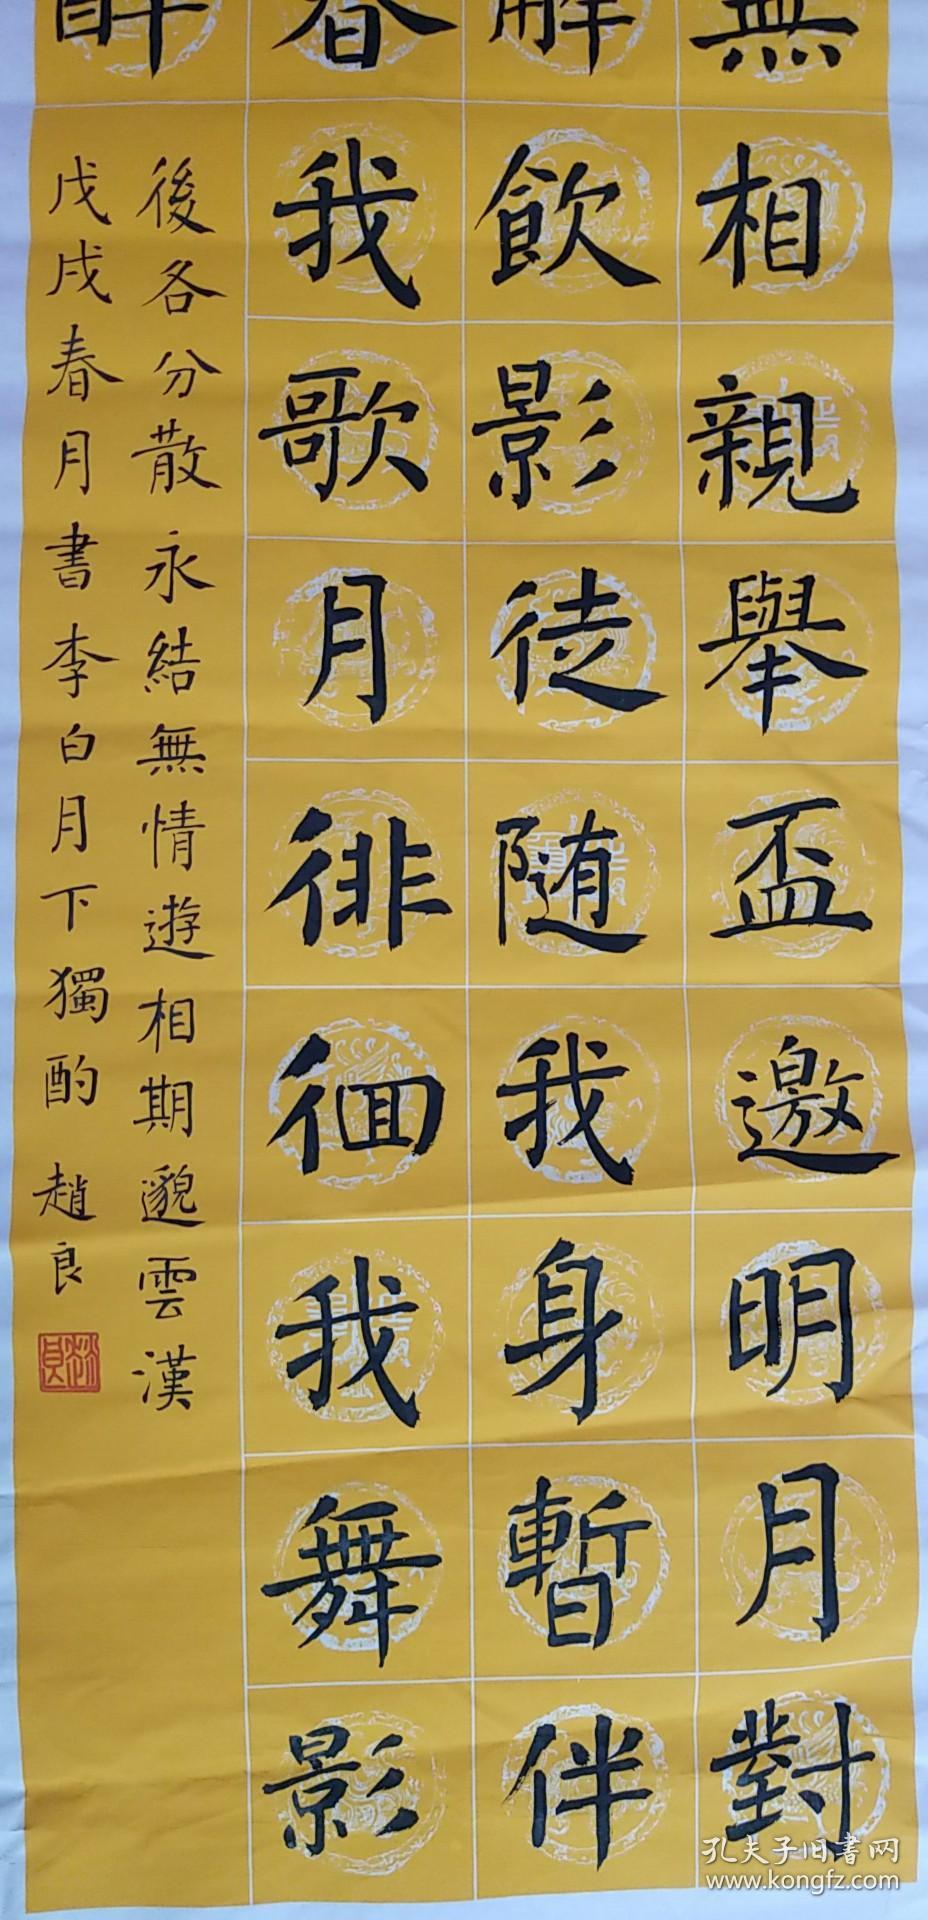 無相親舉盃邀明月對
解飲影徒随我身暫伴
春我歌月徘徊我舞影
醉
後各分散永結無情遊相期邈雲漢
戊戌春月書李白月下獨酌 趙良
孔夫子旧书网
www.kongfz.com